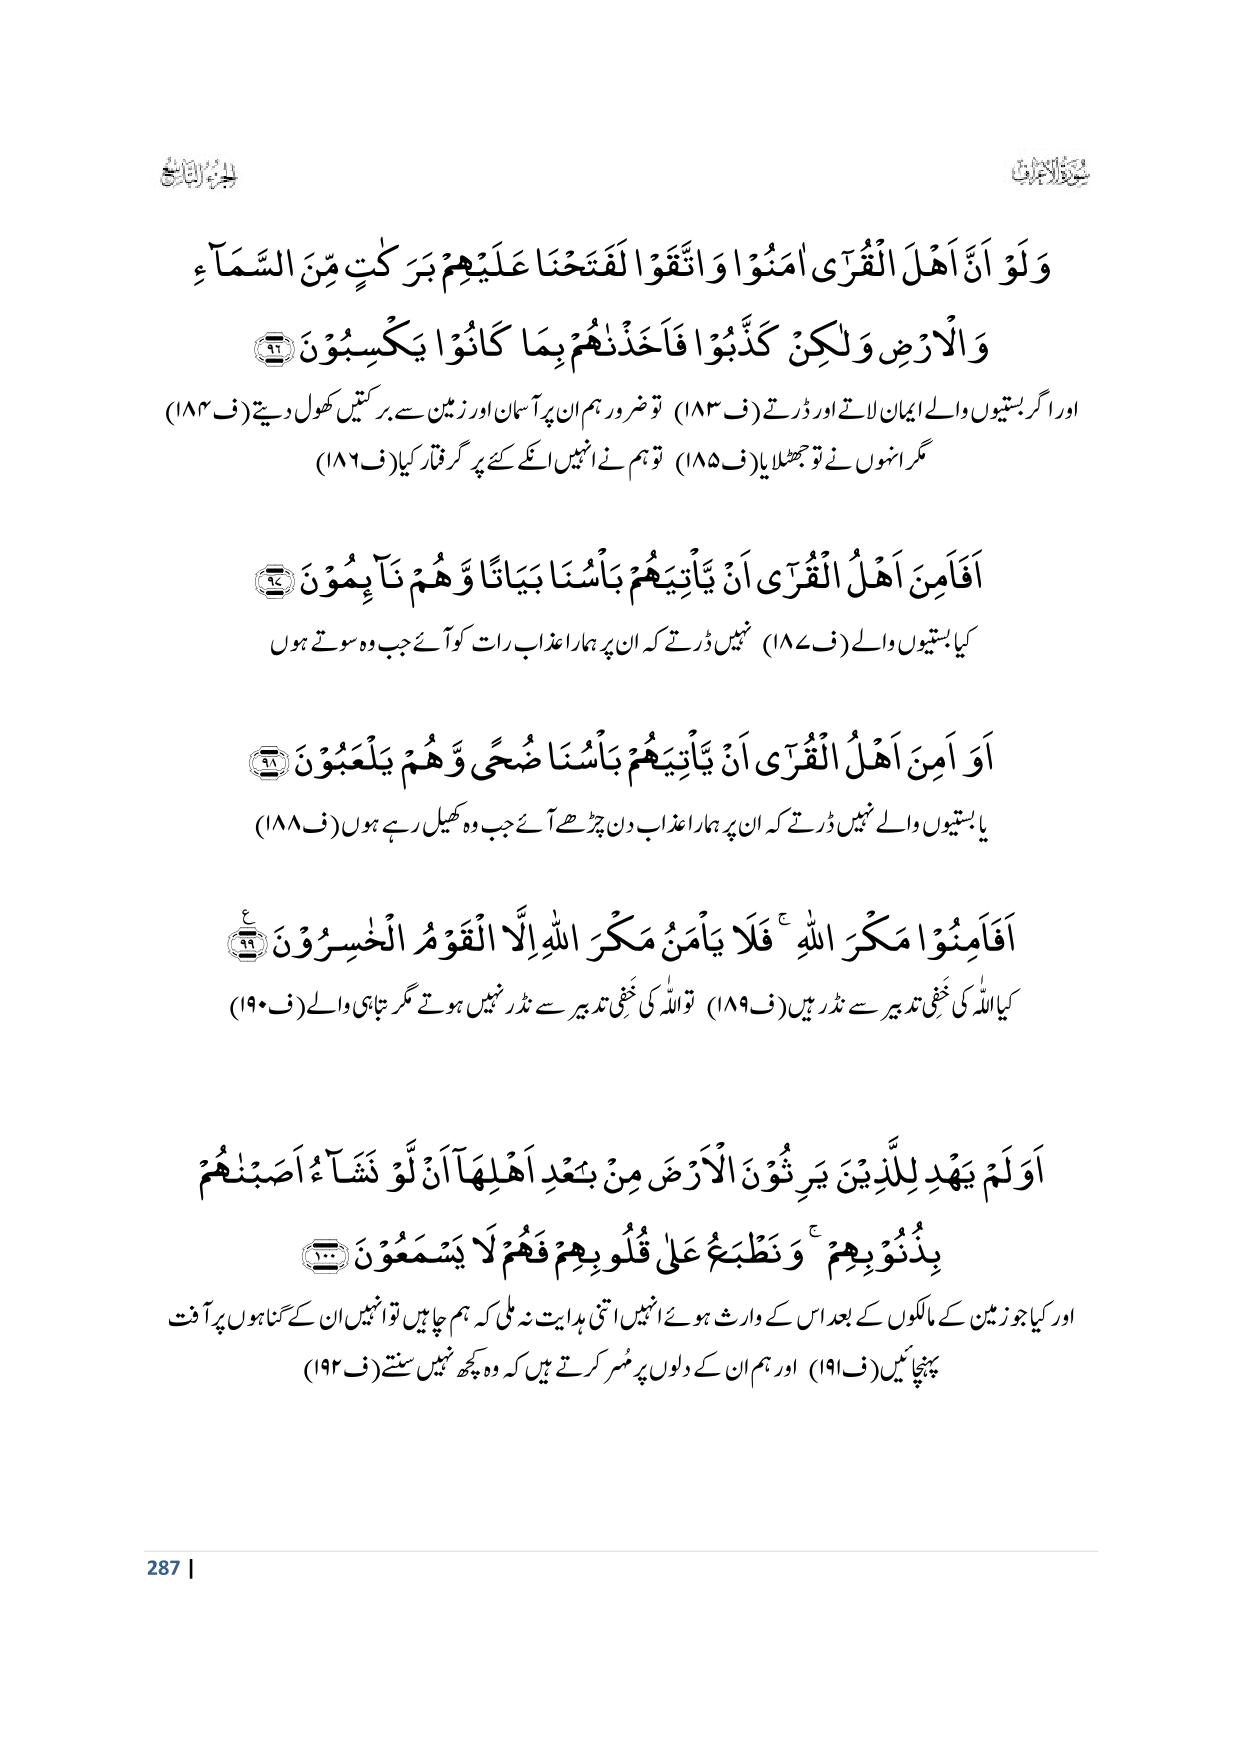 سُوۡرَۃُ الۡاَعۡرَاف
الجزء التاسع
وَلَوْ اَنَّ اَهْلَ الْقُرٰٓى اٰمَنُوْا وَاتَّقَوْا لَفَتَحْنَا عَلَيْهِمْ بَرَكٰتٍ مِّنَ السَّمَآءِ
وَالْاَرْضِ وَلٰكِنْ كَذَّبُوْا فَاَخَذْنٰهُمْ بِمَا كَانُوْا يَكْسِبُوْنَ ﴿۹۶﴾
اور اگر بستیوں والے ایمان لاتے اور ڈرتے (ف۱۸۳) تو ضرور ہم ان پر آسمان اور زمین سے برکتیں کھول دیتے (ف۱۸۴)
مگر انہوں نے تو جھٹلایا (ف۱۸۵) تو ہم نے انہیں انکے کئے پر گرفتار کیا (ف۱۸۶)
اَفَاَمِنَ اَهْلُ الْقُرٰٓى اَنْ يَّاْتِيَهُمْ بَاْسُنَا بَيَاتًا وَّهُمْ نَآىِٕمُوْنَ ﴿۹۷﴾
کیا بستیوں والے (ف۱۸۷) نہیں ڈرتے کہ ان پر ہمارا عذاب رات کو آئے جب وہ سوتے ہوں
اَوَ اَمِنَ اَهْلُ الْقُرٰٓى اَنْ يَّاْتِيَهُمْ بَاْسُنَا ضُحًى وَّهُمْ يَلْعَبُوْنَ ﴿۹۸﴾
یا بستیوں والے نہیں ڈرتے کہ ان پر ہمارا عذاب دن چڑھے آئے جب وہ کھیل رہے ہوں (ف۱۸۸)
اَفَاَمِنُوْا مَكْرَ اللّٰهِ ۚ فَلَا يَاْمَنُ مَكْرَ اللّٰهِ اِلَّا الْقَوْمُ الْخٰسِرُوْنَ ﴿۹۹﴾ ع
کیا اللّٰہ کی خَفِی تدبیر سے نڈر ہیں (ف۱۸۹) تو اللّٰہ کی خَفِی تدبیر سے نڈر نہیں ہوتے مگر تباہی والے (ف۱۹۰)
اَوَلَمْ يَهْدِ لِلَّذِيْنَ يَرِثُوْنَ الْاَرْضَ مِنْۢ بَعْدِ اَهْلِهَآ اَنْ لَّوْ نَشَآءُ اَصَبْنٰهُمْ
بِذُنُوْبِهِمْ ۚ وَنَطْبَعُ عَلٰى قُلُوبِهِمْ فَهُمْ لَا يَسْمَعُوْنَ ﴿۱۰۰﴾
اور کیا جو زمین کے مالکوں کے بعد اس کے وارث ہوئے انہیں اتنی ہدایت نہ ملی کہ ہم چاہیں تو انہیں ان کے گناہوں پر آفت
پہنچائیں (ف۱۹۱) اور ہم ان کے دلوں پر مُہر کرتے ہیں کہ وہ کچھ نہیں سنتے (ف۱۹۲)
287 |